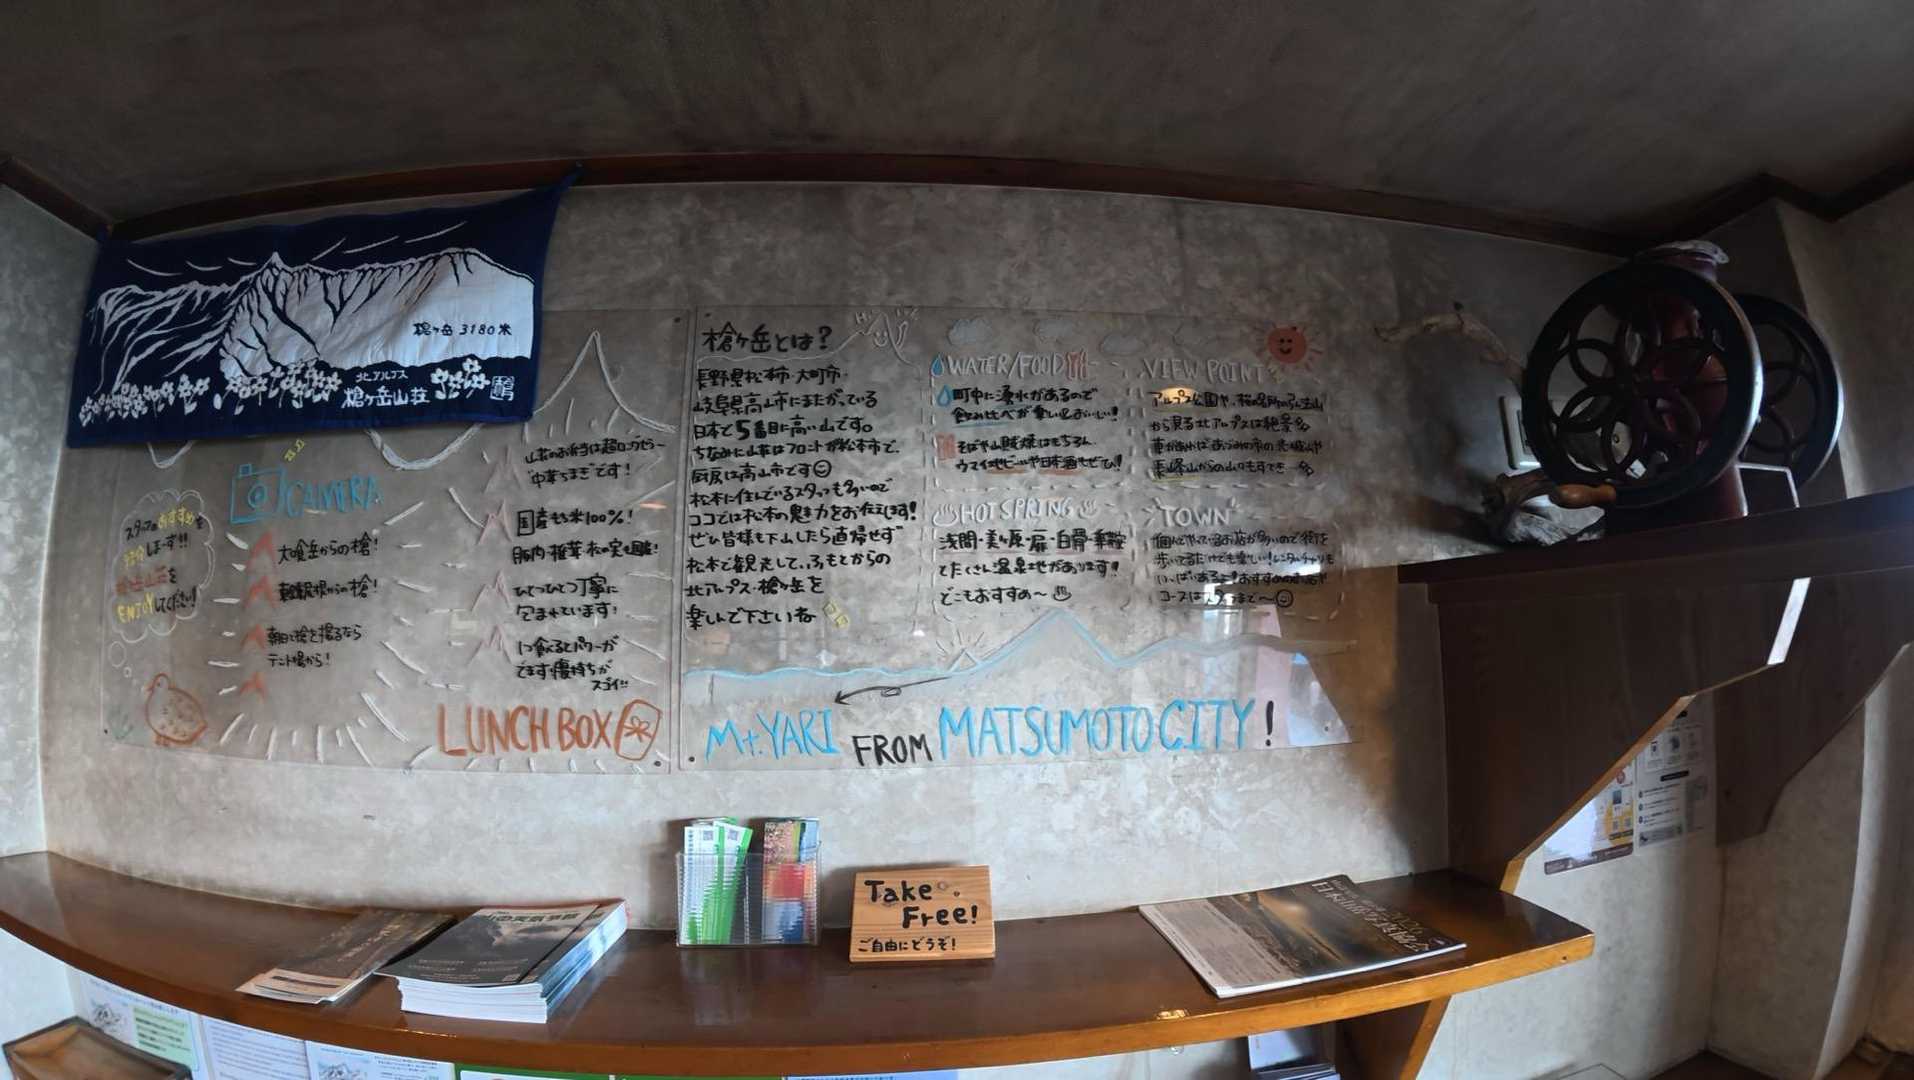 槍ヶ岳 3180米
北アルプス
槍ヶ岳山荘
スタッフのおすすめを
紹介しまーす!!
槍ヶ岳山荘を
ENJOYしてください!
CAMERA
大喰岳からの槍!
朝日と槍を撮るなら
テント場から!
山荘のお弁当は超ロングセラー
"中華ちまき"です!
国産もち米100%!
豚肉・椎茸・松の実も国産!
ひとつひとつ丁寧に
包まれています!
1つ食べるとパワーが
でます!腹持ちが
スゴイ!!
LUNCH BOX
槍ヶ岳とは?
長野県松本市・大町市・
岐阜県高山市にまたがっている
日本で5番目に高い山です。
ちなみに山荘はフロントが松本市で、
厨房は高山市です
松本に住んでいるスタッフも多いので
ココでは松本の魅力をお伝えします!
ぜひ皆様も下山したら直帰せず
松本で観光して、ふもとからの
北アルプス・槍ヶ岳を
楽しんで下さいね
WATER/FOOD
町中に湧水があるので
飲み比べが楽しい&おいしい!
そばや山賊焼はもちろん、
ウマイ地ビールや日本酒もぜひ!
VIEW POINT
アルプス公園や、桜の名所の弘法山
から見る北アルプスは絶景
車があればあづみの市の光城山や
長峰山からの山々もすてき
HOT SPRING
浅間・美ヶ原・扉・白骨・乗鞍
とたくさん温泉地があります!!
どこもおすすめ〜
TOWN
個人でやっているお店が多いので街を
歩いてるだけでも楽しい!レンタルチャリも
いっぱいあるよ!おすすめのお店や
コースはスタッフまで〜
Mt.YARI FROM MATSUMOTO CITY!
Take
Free!
ご自由にどうぞ!
山の天気予報